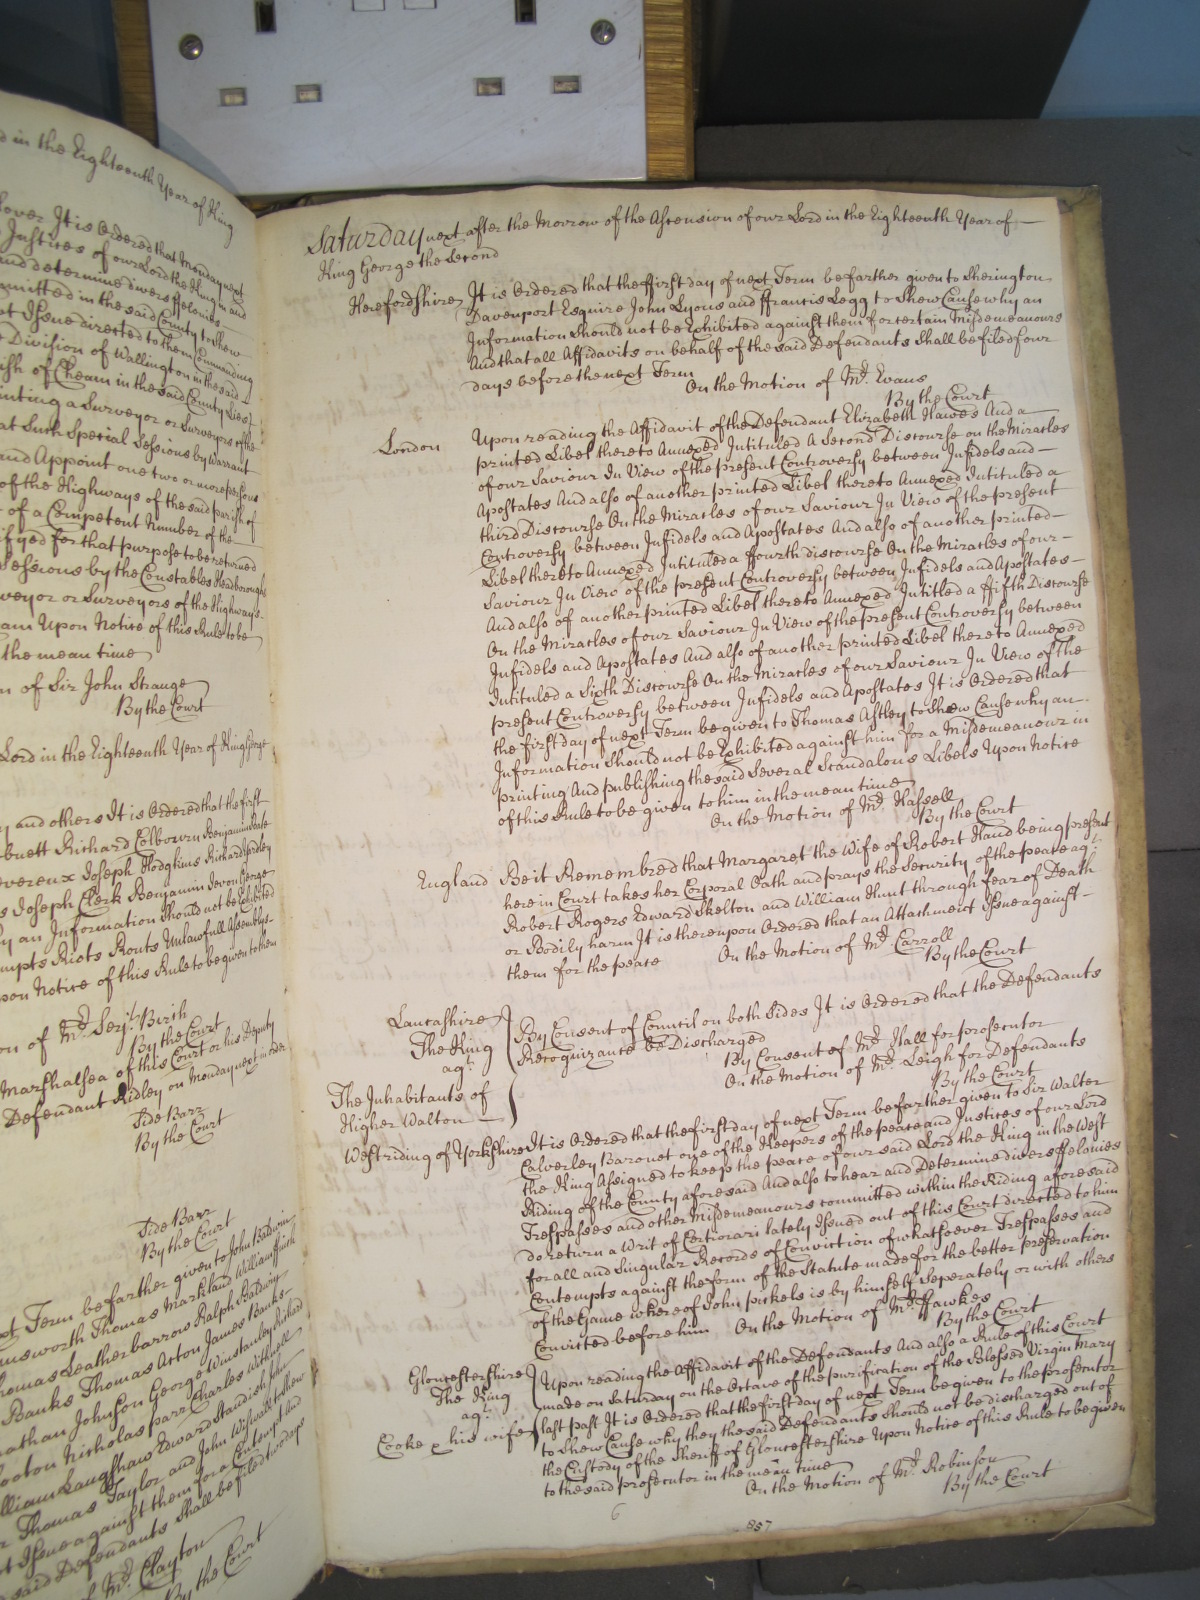 d in the Eighteenth Year of King
over It is Ordered that Monday next
Justices of our Lord the King in and
and determine divers ffelonies
mmitted in the said County to shew
at Issue directed to them Commanding
Division of Wallington in the said
ish of Cheam in the said County Lies
inting a Surveyor or Surveyors of the
at Such Special Sessions by Warrant
and Appoint one two or more persons
of the Highways of the said parish of
of a Competent Number of the
ifyed for that purpose to be returned
Sessions by the Constables Headboroughs
veyor or Surveyors of the Highways
am Upon Notice of this Rule to be
the mean time
n of Sir John Strange
By the Court
Lord in the Eighteenth Year of King George
y and others It is Ordered that the first
bnett Richard Colbourn Benjamin
evereux Joseph Hodgkins Richard
s Joseph Clerk Benjamin Devon George
y an Information Should not be Exhibited
mpts Riots Routs Unlawfull Assemblys
pon Notice of this Rule to be given to them
on of Mr. Serjt. Birch
By the Court
Marshalsea of this Court or his Deputy
Defendant Ridley on Monday next in
Side Barr
By the Court
Side Barr
By the Court
xt Term be farther given to John Baldwin
nsworth Thomas Markland William ffinch
homas Leatherbarrow Ralph Baldwin
Banks Thomas Acton James Banks
nathan Johnson George Winstanley Richard
ooton Nicholas parr Charles Withnell
lliam Laughhaw Edward Standish John
r Thomas Taylor and John to shew
t Issue against them for a Contempt And
said Defendants Shall be filed two days
f Mr. Clayton
By the Court
Saturday next after the Morrow of the Ascension of our Lord in the Eighteenth Year of
King George the Second
Herefordshire It is Ordered that the ffirst day of next Term be farther given to Sherington
Davenport Esquire John Lyons and ffrancis Legg to Shew Cause why an
Information Should not be Exhibited against them for certain Misdemeanours
And that all Affidavits on behalf of the said Defendants Shall be filed four
days before the next Term
On the Motion of Mr. Evans
By the Court
London Upon reading the Affidavit of the Defendant Elizabeth Hawes And a
printed Libel thereto Annexed Intituled A Second Discourse on the Miracles
of our Saviour In View of the present Controversy between Infidels and
Apostates And also of another printed Libel thereto Annexed Intituled a
third Discourse On the Miracles of our Saviour In View of the present
Controversy between Infidels and Apostates And also of another printed
Libel thereto Annexed Intituled a ffourth discourse On the Miracles of our
Saviour In View of the present Controversy between Infidels and Apostates
And also of another printed Libel thereto Annexed Intitled a ffifth Discourse
On the Miracles of our Saviour In View of the present Controversy between
Infidels and Apostates And also of another printed Libel thereto Annexed
Intituled a Sixth Discourse On the Miracles of our Saviour In View of the
present Controversy between Infidels and Apostates It is Ordered that
the first day of next Term be given to Thomas Astley to Shew Cause why an
Information Should not be Exhibited against him for a Misdemeanour in
printing And publishing the said Several Scandalous Libels Upon Notice
of this Rule to be given to him in the mean time
On the Motion of Mr. Hassell
By the Court
England Be it Remembred that Margaret the Wife of Robert Hand being present
here in Court takes her Corporal Oath and prays the Security of the peace agt.
Robert Rogers Edward Skelton and William Hunt through fear of Death
or Bodily harm It is thereupon Ordered that an Attachment Issue against
them for the peace On the Motion of Mr. Carroll
By the Court
Lancashire By Consent of Council on both Sides It is Ordered that the Defendants
The King Recognizance be Discharged
agt. By Consent of Mr. Hall for prosecutor
The Inhabitants of On the Motion of Mr. Leigh for Defendants
Higher Walton By the Court
West riding of Yorkshire It is Ordered that the first day of next Term be farther given to Sir Walter
Calverley Baronet one of the Keepers of the peace and Justices of our Lord
the King Assigned to keep the peace of our said Lord the King in the West
Riding of the County aforesaid And also to hear and Determine divers ffelonies
Trespasses and other Misdemeanours committed within the Riding aforesaid
do return a Writ of Certiorari lately Issued out of this Court directed to him
for all and Singular Records of Conviction of whatsoever Trespasses and
Contempts against the form of the Statute made for the better preservation
of the Game whereof John pickels is by himself Seperately or with others
Convicted before him On the Motion of Mr. ffawkes
By the Court
Gloucestershire Upon reading the Affidavit of the Defendants And also a Rule of this Court
The King made on Saturday on the Octave of the purification of the Blessed Virgin Mary
agt. last past It is Ordered that the first day of next Term be given to the prosecutor
Cooke & his wife to Shew Cause why they the said Defendants Should not be discharged out of
the Custody of the Sheriff of Gloucestershire Upon Notice of this Rule to be given
to the said prosecutor in the mean time
On the Motion of Mr. Robinson
By the Court
6
857